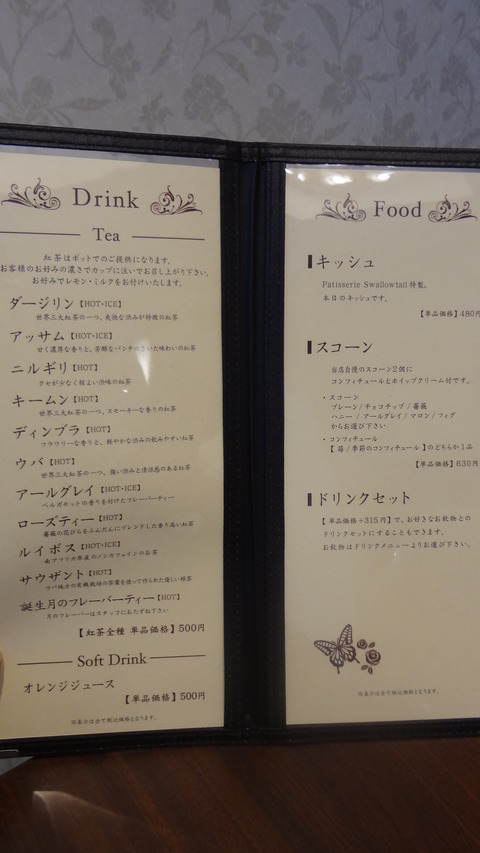 Drink
Tea
紅茶はポットでのご提供になります。
お客様のお好みの濃さでカップに注いでお召し上がり下さい。
お好みでレモン・ミルクをお付けいたします。
ダージリン【HOT・ICE】
世界三大紅茶の一つ、爽快な渋みが特徴の紅茶
アッサム【HOT・ICE】
甘く濃厚な香りと、芳醇なパンチのきいた味わいの紅茶
ニルギリ【HOT】
クセが少なく程よい渋味の紅茶
キームン【HOT】
世界三大紅茶の一つ、スモーキーな香りの紅茶
ディンブラ【HOT】
フラワリーな香りと、鮮やかな渋みの飲みやすい紅茶
ウバ【HOT】
世界三大紅茶の一つ、強い渋みと清涼感のある紅茶
アールグレイ【HOT・ICE】
ベルガモットの香りを付けたフレーバーティー
ローズティー【HOT】
薔薇の花びらをふんだんにブレンドした香り高い紅茶
ルイボス【HOT・ICE】
南アフリカ原産のノンカフェインのお茶
サウザント【HOT】
ウバ地方の有機栽培の茶葉を使って作られた優しい緑茶
誕生月のフレーバーティー【HOT】
月のフレーバーはスタッフにおたずね下さい
【紅茶全種 単品価格】500円
Soft Drink
オレンジジュース
【単品価格】500円
※表示は全て税込価格となります。
Food
キッシュ
Patisserie Swallowtail特製。
本日のキッシュです。
【単品価格】480円
スコーン
当店自慢のスコーン2個に
コンフィチュールとホイップクリーム付です。
・スコーン
プレーン/チョコチップ/薔薇
ハニー/アールグレイ/マロン/フィグ
からお選び下さい
・コンフィチュール
【苺/季節のコンフィチュール】のどちらか1品
【単品価格】630円
ドリンクセット
【単品価格+315円】で、お好きなお飲物との
ドリンクセットにすることもできます。
お飲物はドリンクメニューよりお選び下さい。
※表示は全て税込価格となります。